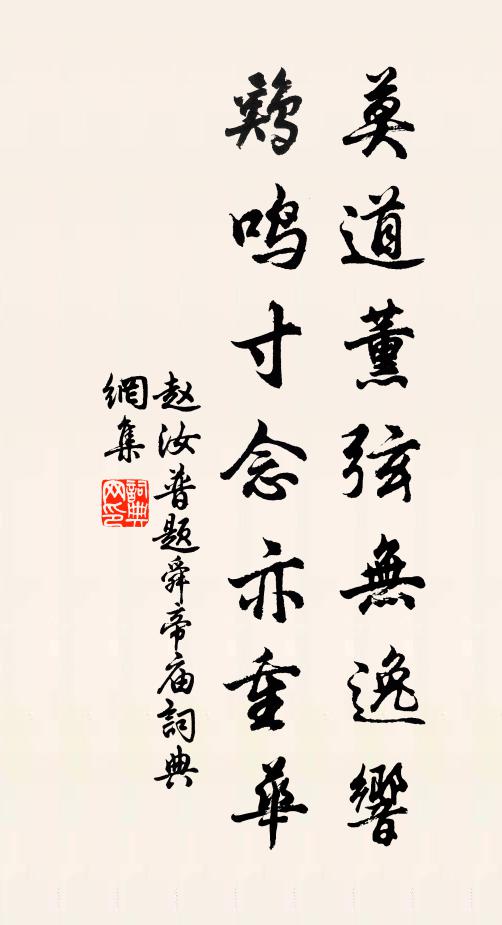 莫道薰弦無逸響
鷄鳴寸念亦重華
赵汝普题舜帝庙詞典
網集
詞典
网印